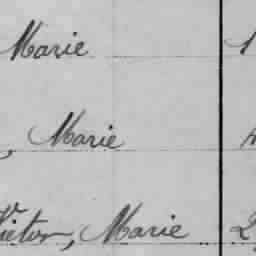 Marie
, Marie
Victor, Marie